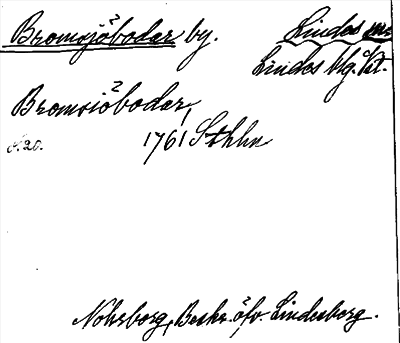 Bromsjöbodar by. Lindes sn.
Lindes blg. Vst.
Bromsiöbodar,
s. 20. 1761 Sthlm
Nohrborg, Beskr. öfv. Lindesborg.